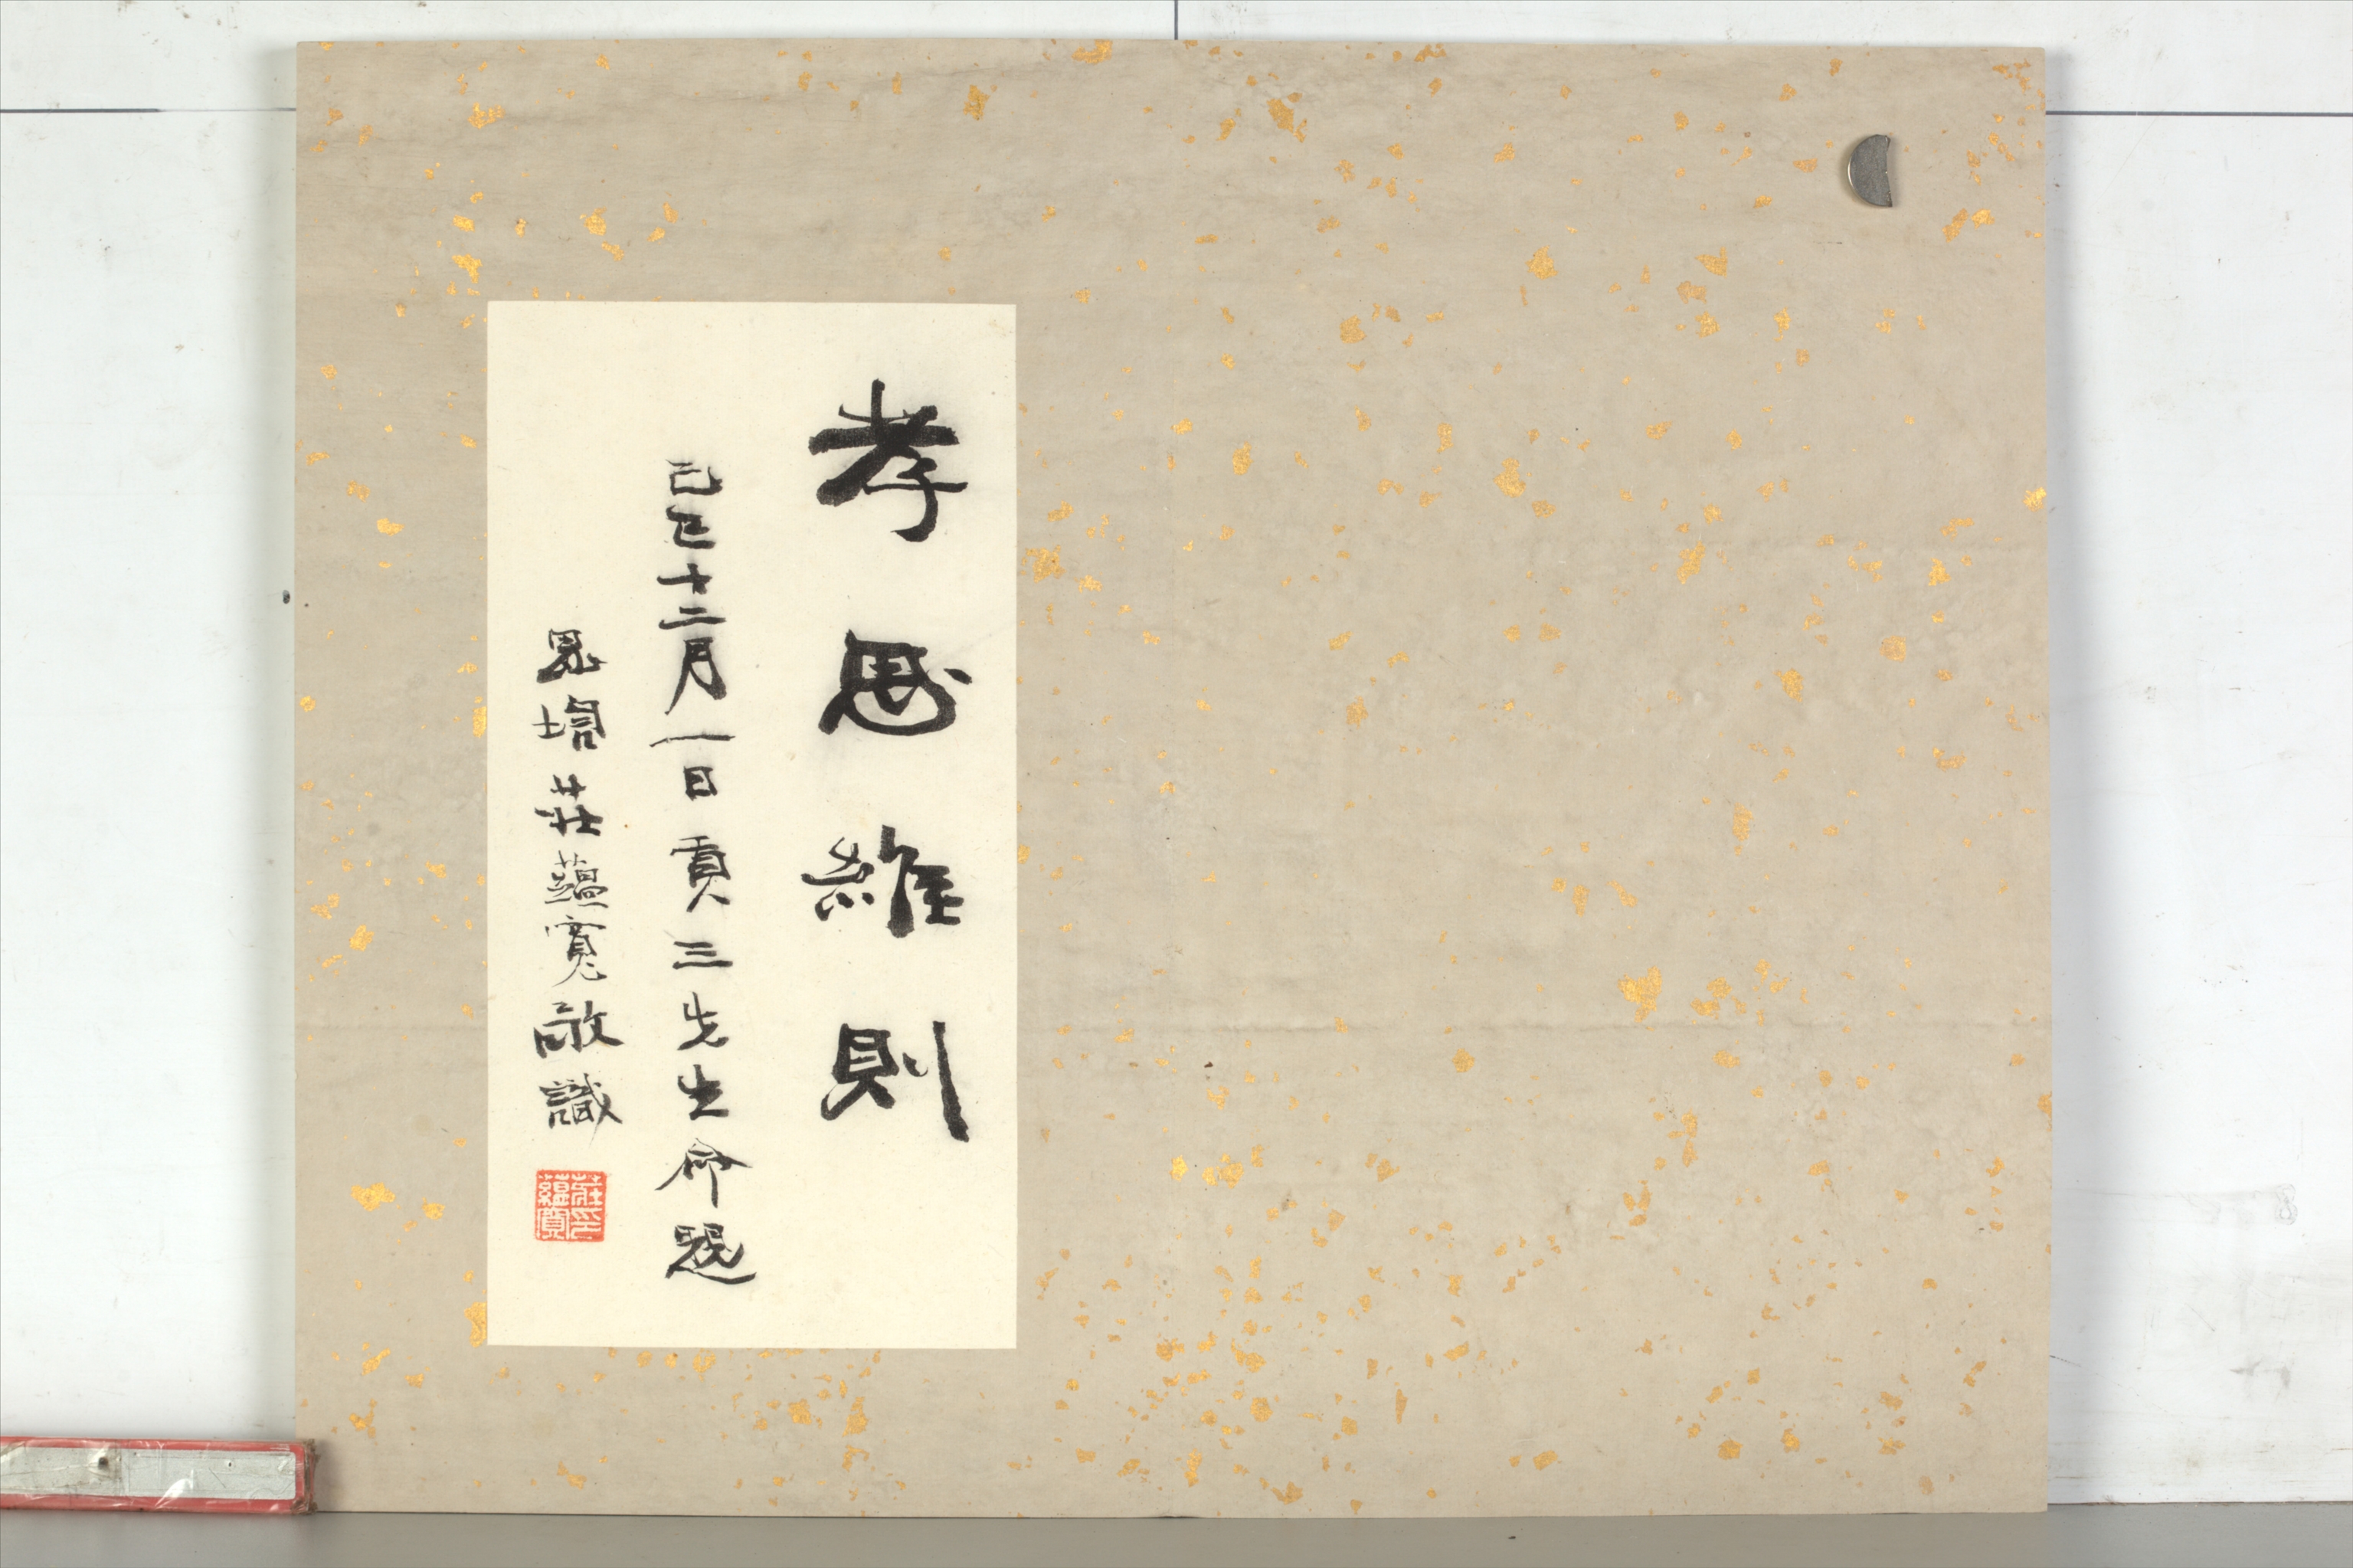 孝思維則
己巳十二月一日貢三先生命題
思墖莊蘊寬敬識
莊蘊寬印